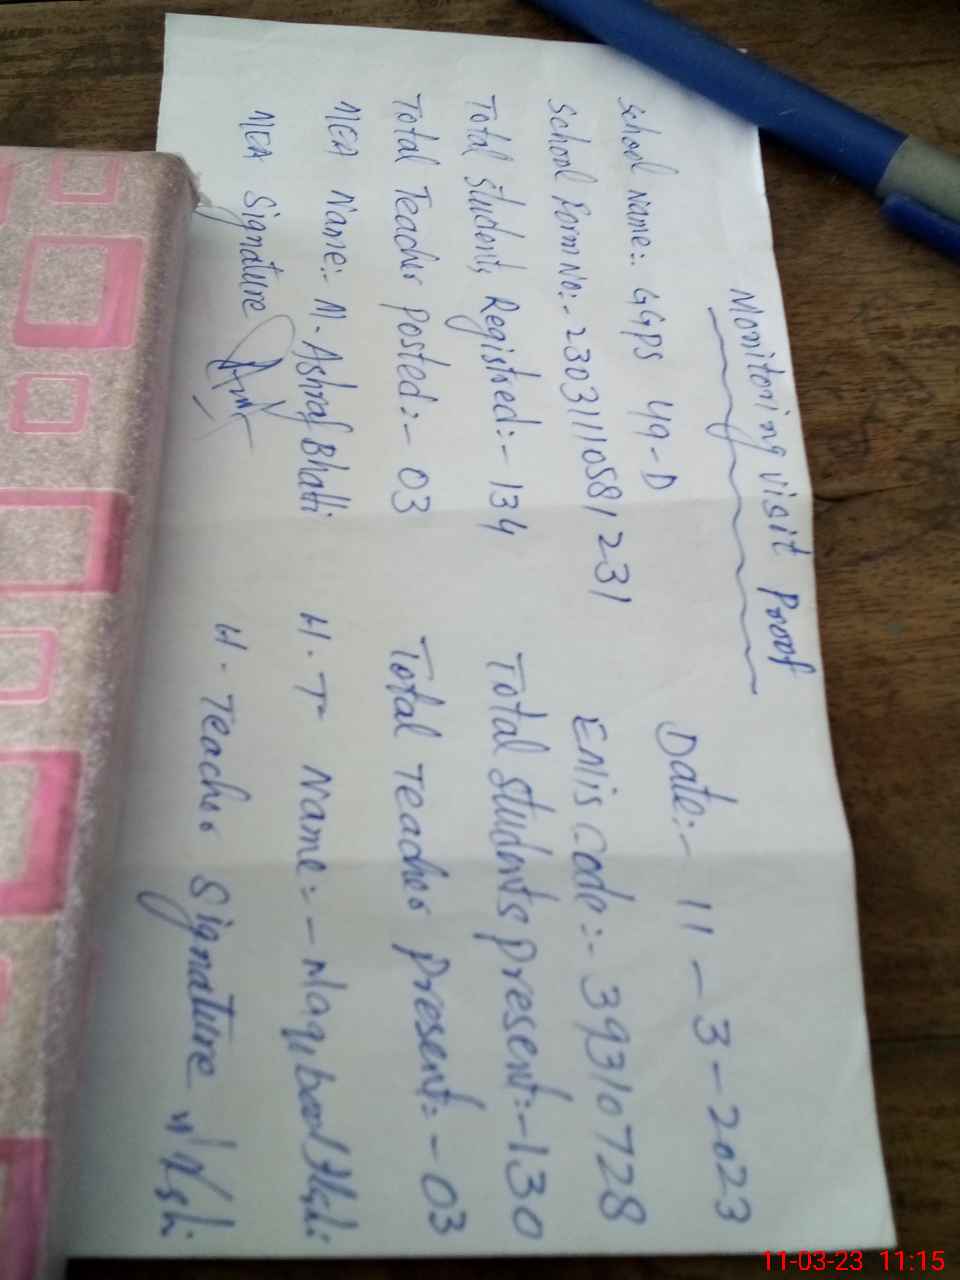 Monitoring visit Proof
School Name:- GGPS 49-D Date:- 11-3-2023
School Form No:- 23031110581231 EMIS Code:- 39310728
Total Students Registred:- 134 Total Students present:- 130
Total Teacher posted:- 03 Total Teacher present:- 03
MEA Name:- M. Ashraf Bhatti H.T Name:- Maqibool
MEA Signature H. Teacher Signature
11-03-23 11:15